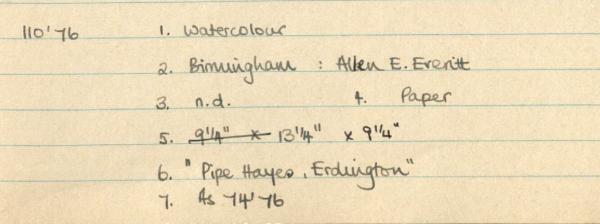 110'76 1. Watercolour
2. Birmingham : Allen E. Everitt
3. n.d. 4. Paper
5. 9¼" x 13¼" x 9¼"
6. "Pipe Hayes, Erdington"
7. As 74'76